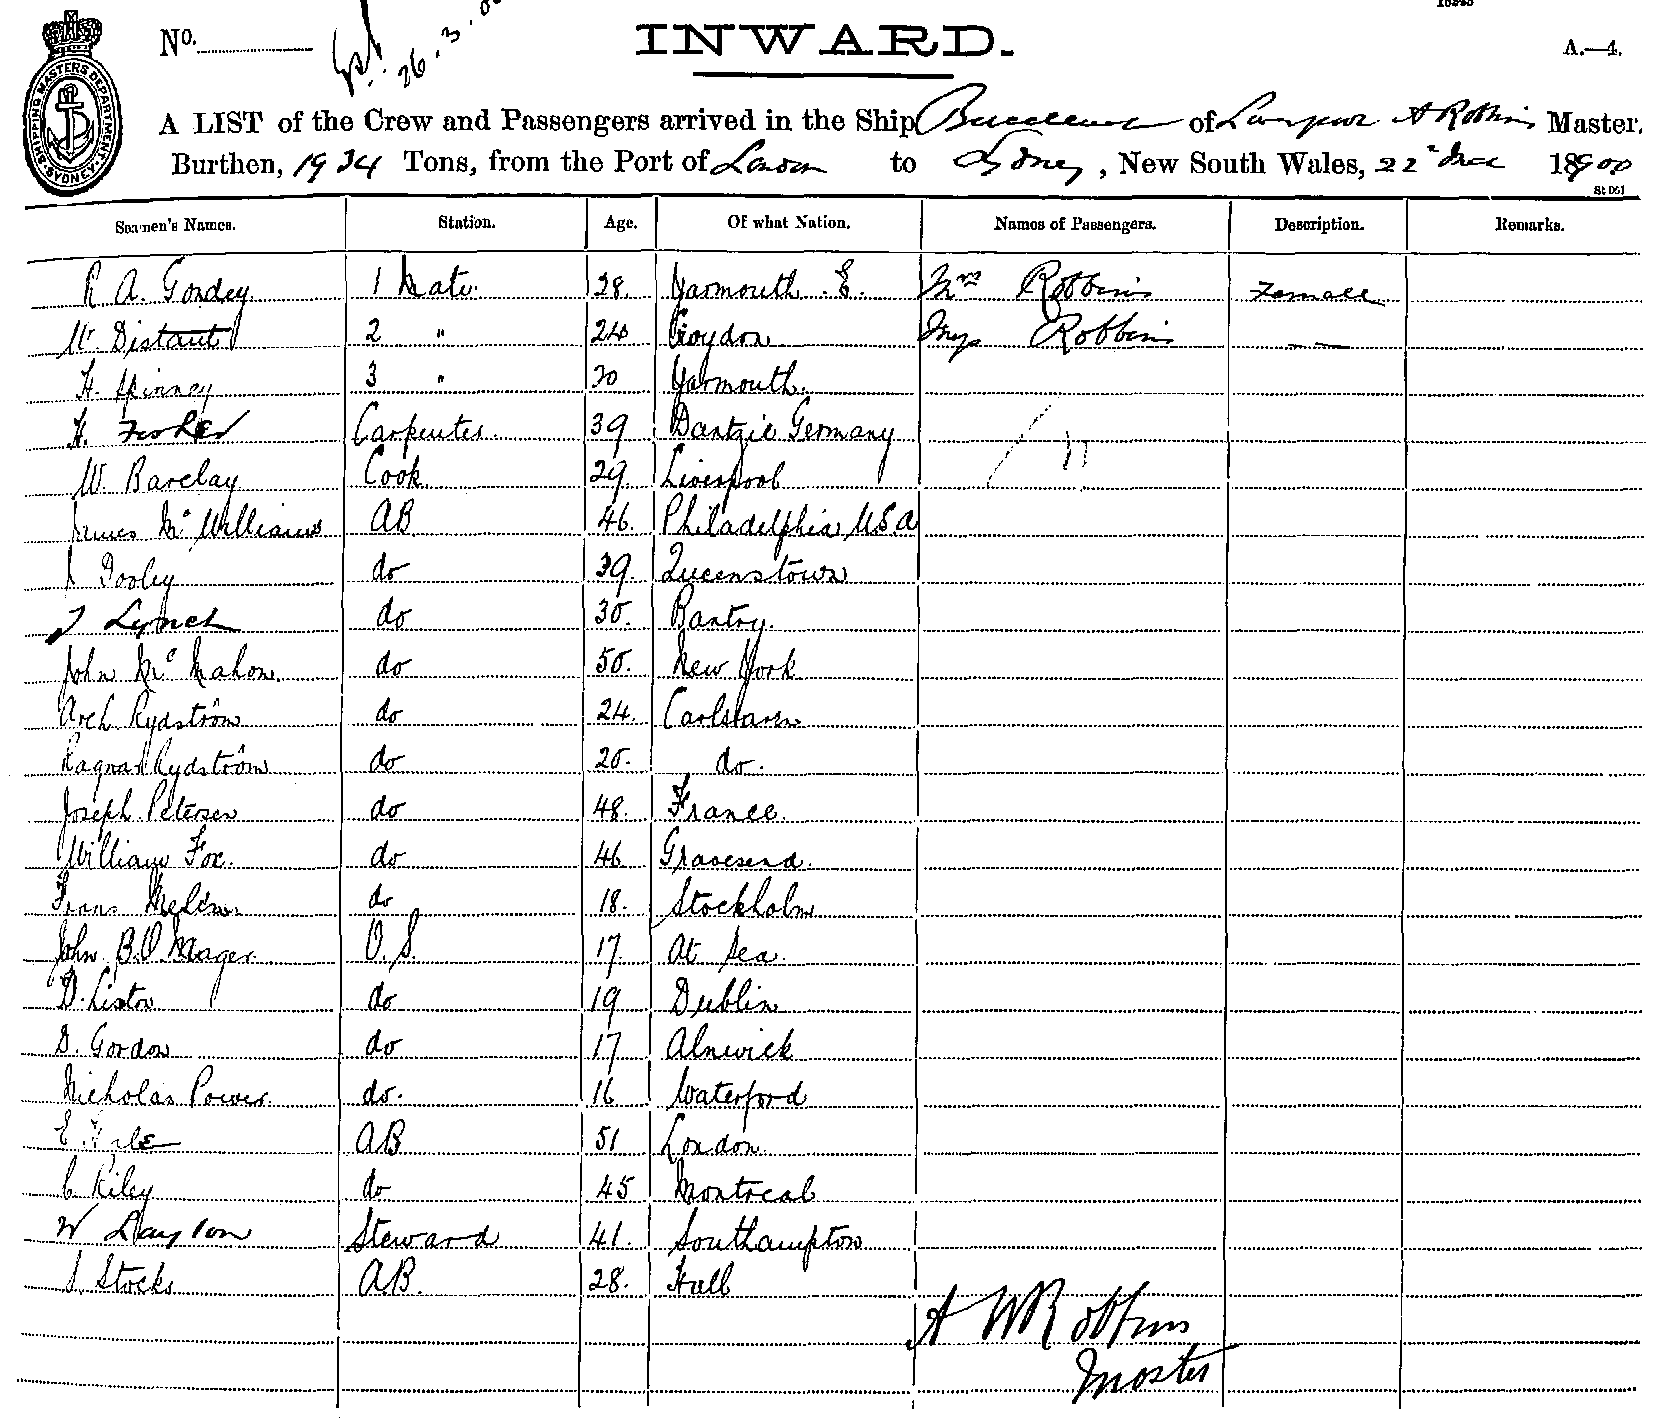 No.
26.3.00
INWARD.
A.—4.
SHIPPING MASTERS DEPARTMENT SYDNEY
A LIST of the Crew and Passengers arrived in the Ship of Liverpool A Robbins Master,
Burthen, 1934 Tons, from the Port of London to Sydney, New South Wales, 22 1900
Seamen's Names. Station. Age. Of what Nation. Names of Passengers. Description. Remarks.
R A. Gordey 1 Mate 28. Yarmouth. E. Mrs Robbins Female
W. Distant 2 " 24 Croydon Robbins —
H. Spinney 3 " 20 Yarmouth.
H. Fisher Carpenter. 39 Dantzic Germany
W. Barclay Cook 29 Liverpool
James Mc Williams AB 46. Philadelphia U.S.A
Dooley do 39. Queenstown
J Lynch do 30. Bantry.
John Mc Mahon. do 50. New York
Arch Rydström do 24. Carlshaven
Ragnar Rydström do 20. do.
Joseph Petersen do 48. France.
William Fox. do 46 Gravesend.
Frans do 18. Stockholm
John B.O Mager O.S. 17. At Sea.
D. Liston do 19 Dublin
D. Gordon do 17 Alnwick
Nicholas Power. do. 16 Waterford
E. AB 51 London
C Riley do 45 Montreal
W Layton Steward 41. Southampton
Stocks AB. 28. Hull
A W Robbins
Master